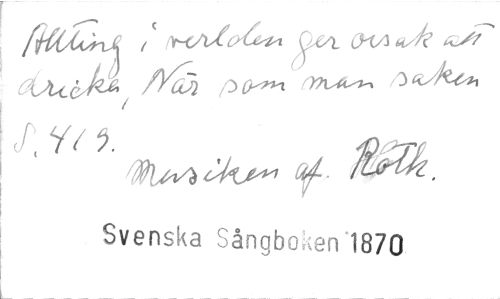 Allting i verlden ger orsak att
dricka, När som man saken
S. 419.
Musiken af. Róth.
Svenska Sångboken 1870